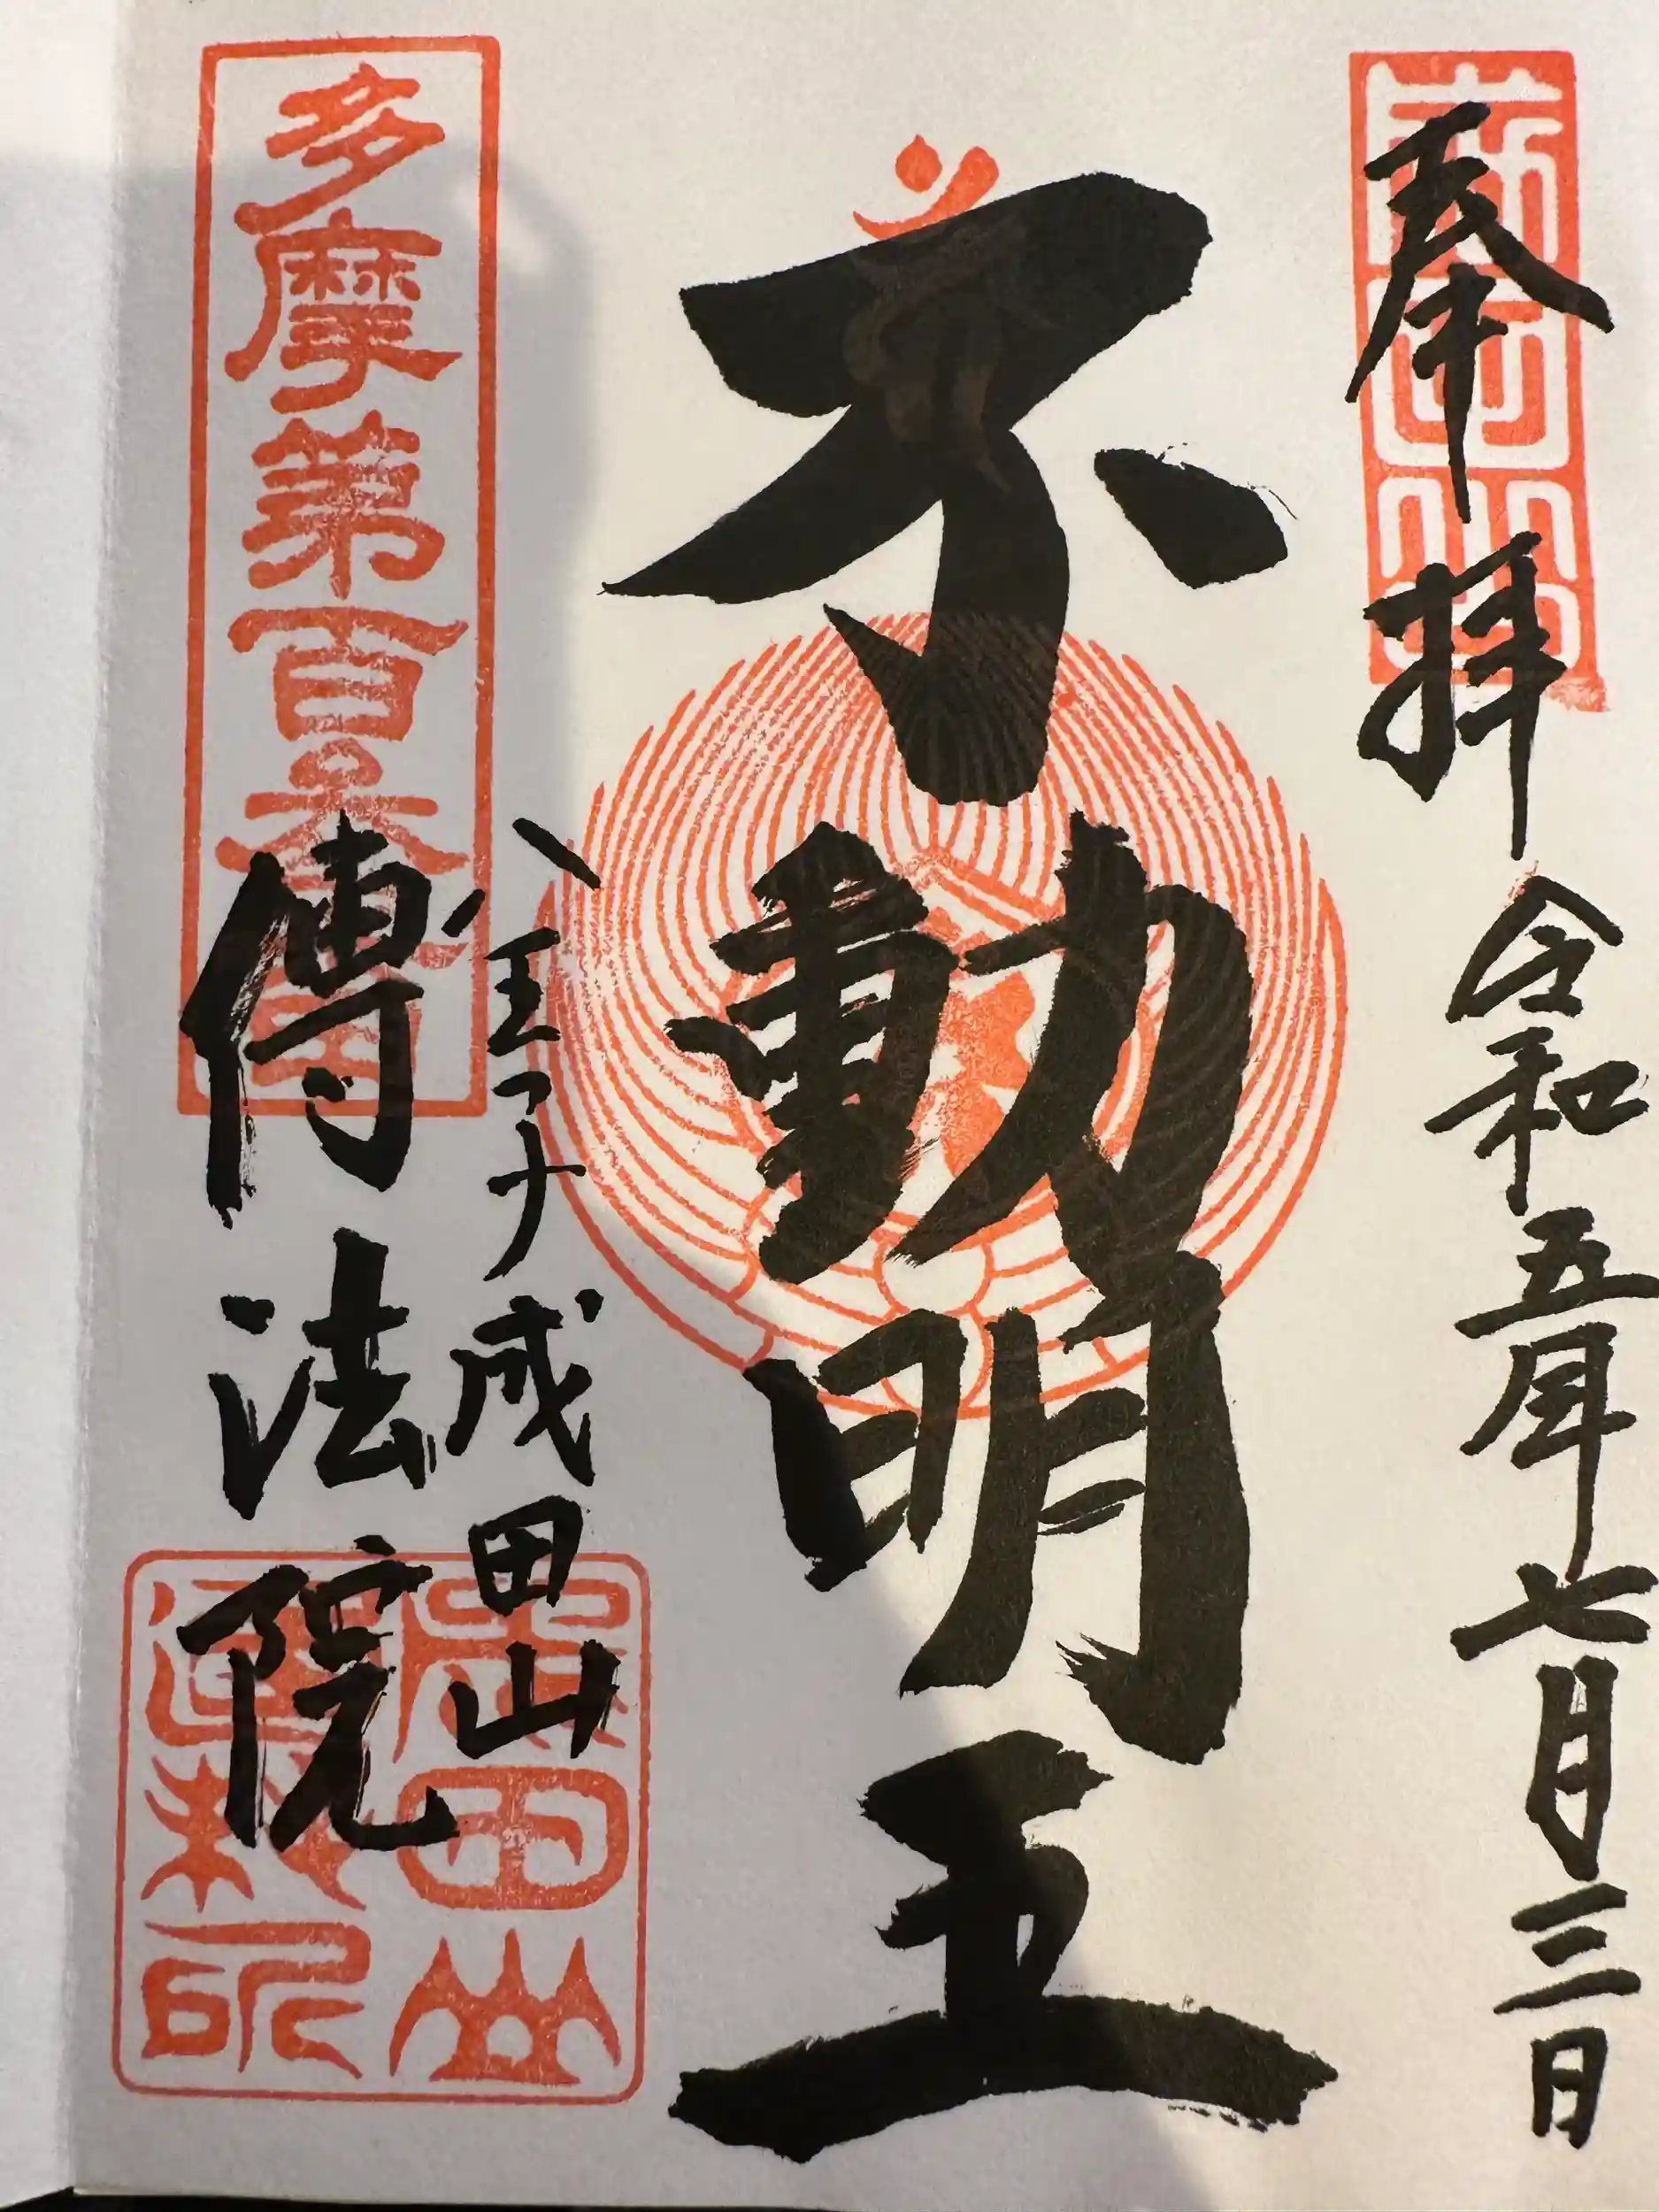 奉拝 令和五年七月三日
不動明王
八王子 成田山
傳法院
多摩第百
田山